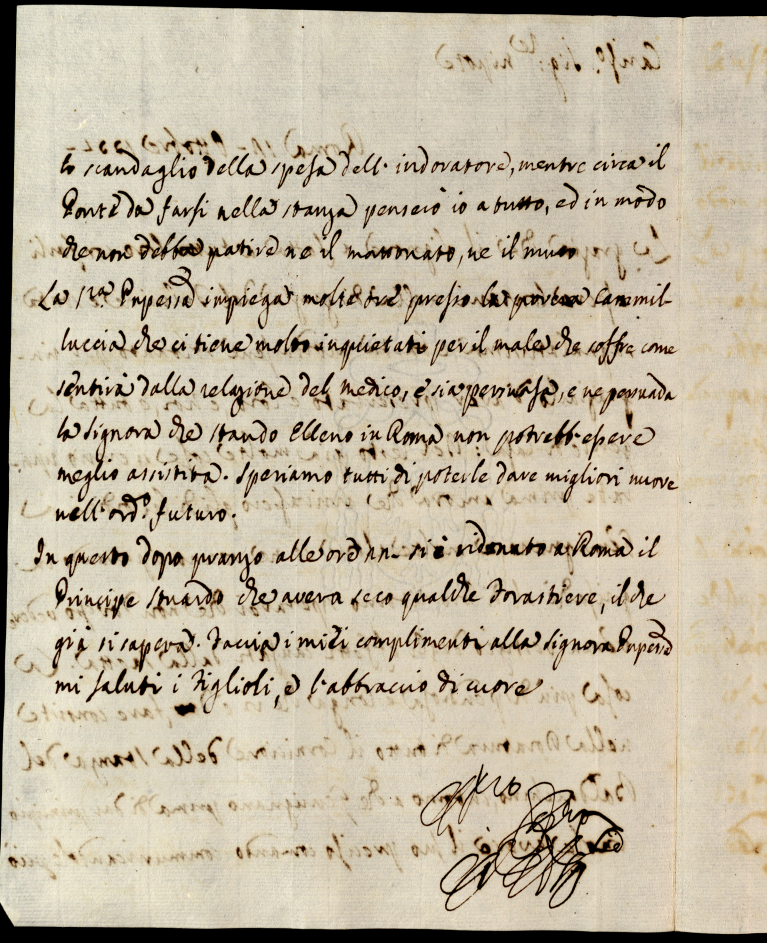 lo scandaglio della spesa dell' indoratore, mentre circa il
Ponte da farsi nella stanza penserò io a tutto, ed in modo
che non debba patire ne il mattonato, ne il muro
La Sra. Pupessa impiega molte ore presso la povera Cammil-
luccia che ci tiene molto inquietati per il male che soffre come
sentirà dalla relazione del medico, e sia persuasa, e ne persuada
la Signora che stando Elleno in Roma non potrebb' essere
meglio assistita. Speriamo tutti di poterle dare migliori nuove
nell' ord.o futuro.
In questo dopo pranzo alle ore si è ridonato a Roma il
Principe Stuardo che aveva seco qualche Forastiere, il che
già si sapeva. Faccia i miei complimenti alla Signora Pupessa
mi saluti i Figlioli, e l'abbraccio di cuore
Zio